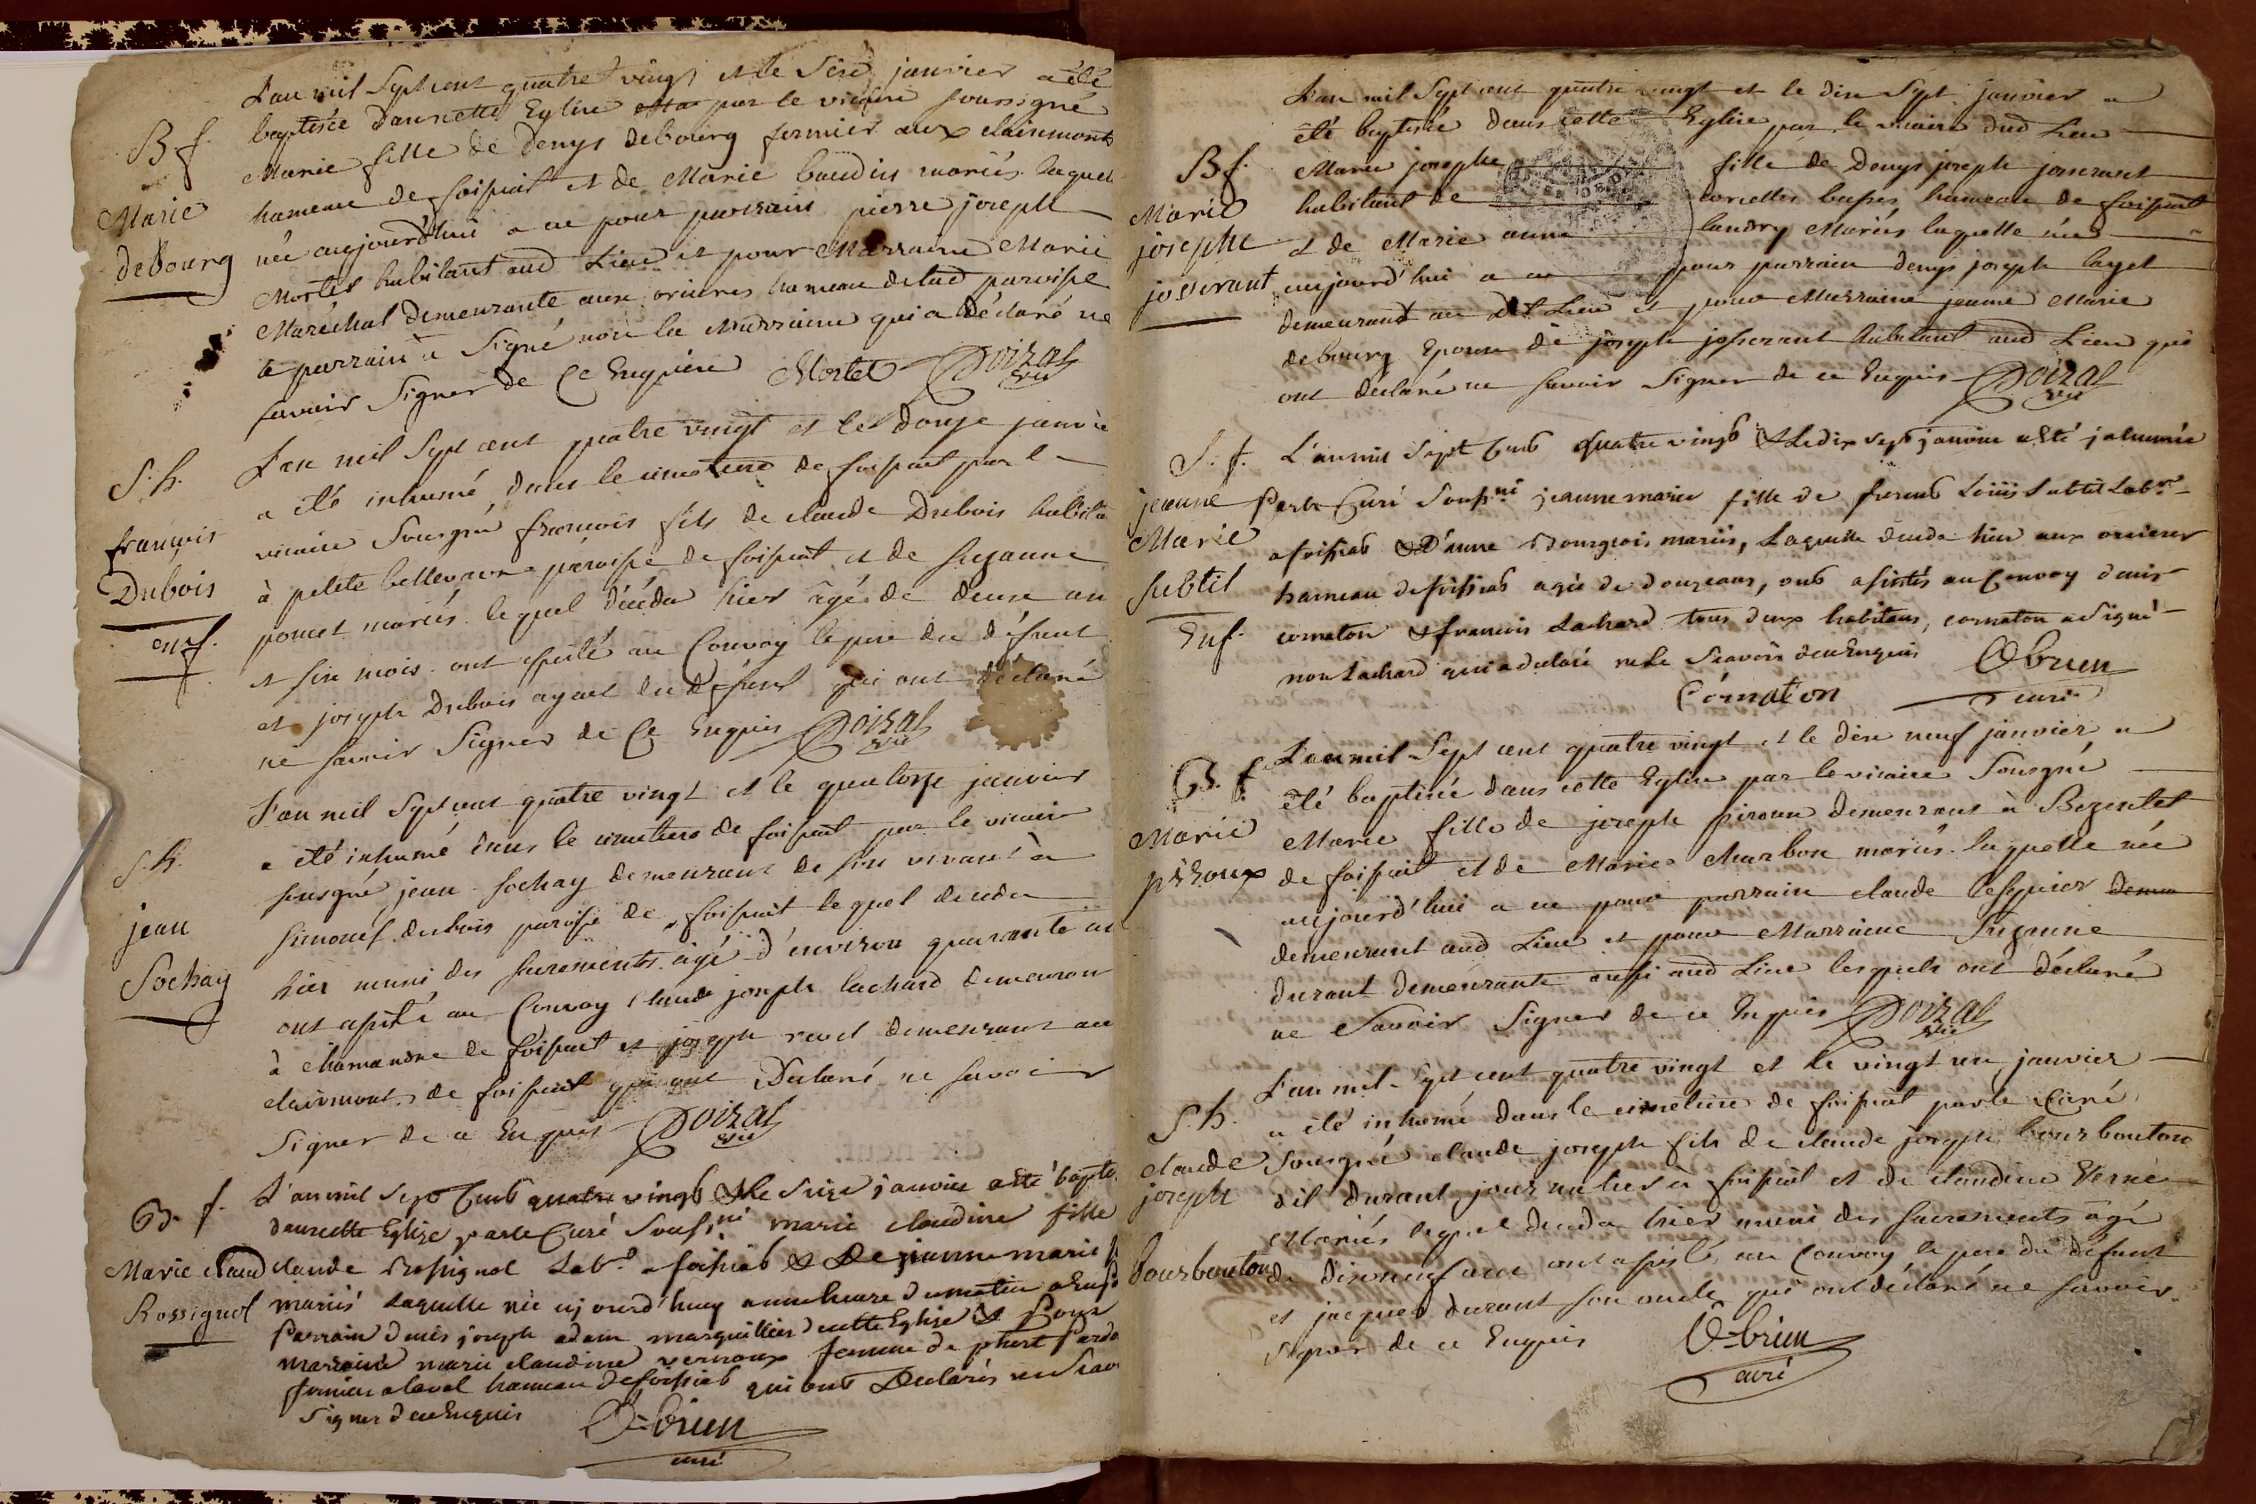 B f.
Marie
debourg
L'an mil Sept cent quatre vingt et le Seize janvier a été
baptisée dans cette Eglise par le vicaire soussigné
Marie fille de Denys debourg fermier aux clairmonts
hameau de foissiat et de Marie baudin mariés laquel
née aujourd'hui a eu pour parrain pierre joseph
Mortel habitant aud Lieu et pour Marraine Marie
Maréchal demeurante aux orieres hameau de lad paroisse
le parrain a Signé non la Marraine qui a déclaré ne
savoir Signer de Ce Enquise Mortel Doizat
vic
S. h.
françois
Dubois
enf.
L'an mil Sept cent quatre vingt et le douze janvie
a été inhumé dans le cimetiere de foissiat par le
vicaire Sousigné françois fils de claude Dubois habita
à petite bellevavre paroisse de foissiat et de Suzanne
poncet mariés lequel décéda hier âgé de deux an
et six mois ont assisté au Convoy le pere du défunt
et joseph Dubois ayeul du défunt qui ont déclaré
ne savoir Signer de Ce Enquis Doizat
vic
S. h.
jean
Sochay
L'an mil Sept cent quatre vingt et le quatorze janvier
a été inhumé dans le cimetiere de foissiat par le vicaire
sousigné jean Sochay demeurant de son vivant à
simonet dubois paroisse de foissiat lequel deceda
hier muni des sacrements âgé d'environ quarante an
ont assisté au Convoy claude joseph lachard demeuran
à chamandre de foissiat et joseph revel demeurant au
clairmonts de foissiat qui ont Déclaré ne savoir
Signer de ce Enquis Doizat
vic
B. f.
Marie claud
Rossignol
L'an mil Sept Cent quatre vingt & le Seize janvier a été bapte
dans cette Eglise par le Curé Souss.né marie claudine fille
claude Rossignol Lab.r a foissiat & De jeanne marie
mariés Laquelle née ajourd'huy a une heure du matin a eu p
Parrain denis joseph adam marguillier de cette Eglise & Pour
marraine marie claudine vernoux femme de phert Parda
fermier a laval hameau de foissiat qui ont Declarés ne Scav
Signer de ce Enquis O-brien
curé
B f.
Marie
josephe
josserant
L'an mil Sept cent quatre vingt et le dix Sept janvier a
été baptisée dans cette Eglise par le vicaire dud Lieu
Marie josephe fille de Denys joseph josserant
habitant de cornettes basses hameau de foissiat
et de Marie anne landry Mariés laquelle née
aujourd'hui a eu pour parrain denys joseph layel
demeurant au dit Lieu et pour Marraine jeanne Marie
debourg Epouse de joseph josserant habitant aud Lieu qui
ont déclaré ne savoir Signer de ce Enquis Doizat
vic
S. f.
jeanne
Marie
subtil
Enf.
L'an mil Sept Cent quatre vingt & Le dix sept janvier a été inhumée
Par le Curé Souss.né jeanne marie fille de furent Louis Subtil Lab.r
a foissiat & D'anne Bourgeois mariés, Laquelle deceda hier aux orieres
hameau de foissiat agée de douze ans, ont assistés au Convoy denis
cornaton & francois Lachard tous deux habitans, cornaton a Signé
non Lachard qui a declaré ne le Scavoir de ce Enquis O-brien
Cornaton curé
B. f.
Marie
piroux
L'an mil Sept cent quatre vingt et le dix neuf janvier a
été baptisée dans cette Eglise par le vicaire Sousigné
Marie fille de joseph piroux demeurant à Bezentet
de foissiat et de Marie Charbon mariés laquelle née
aujourd'hui a eu pour parrain claude
demeurant aud Lieu et pour Marraine Suzanne
durant demeurante aussi aud Lieu lesquels ont déclaré
ne Savoir Signer de ce Enquis Doizat
vic
S. h.
claude
joseph
bourbouton
L'an mil Sept cent quatre vingt et le vingt un janvier
a été inhumé dans le cimetiere de foissiat par le Curé
Sousigné claude joseph fils de claude joseph bourbouton
dit durant journalier à foissiat et de claudine Verne
Mariés lequel deceda hier muni des sacrements âgé
de dixneuf ans ont assisté au Convoy le pere du défunt
et jacques durant son oncle qui ont déclaré ne savoir
Signer de ce Enquis O-brien
curé